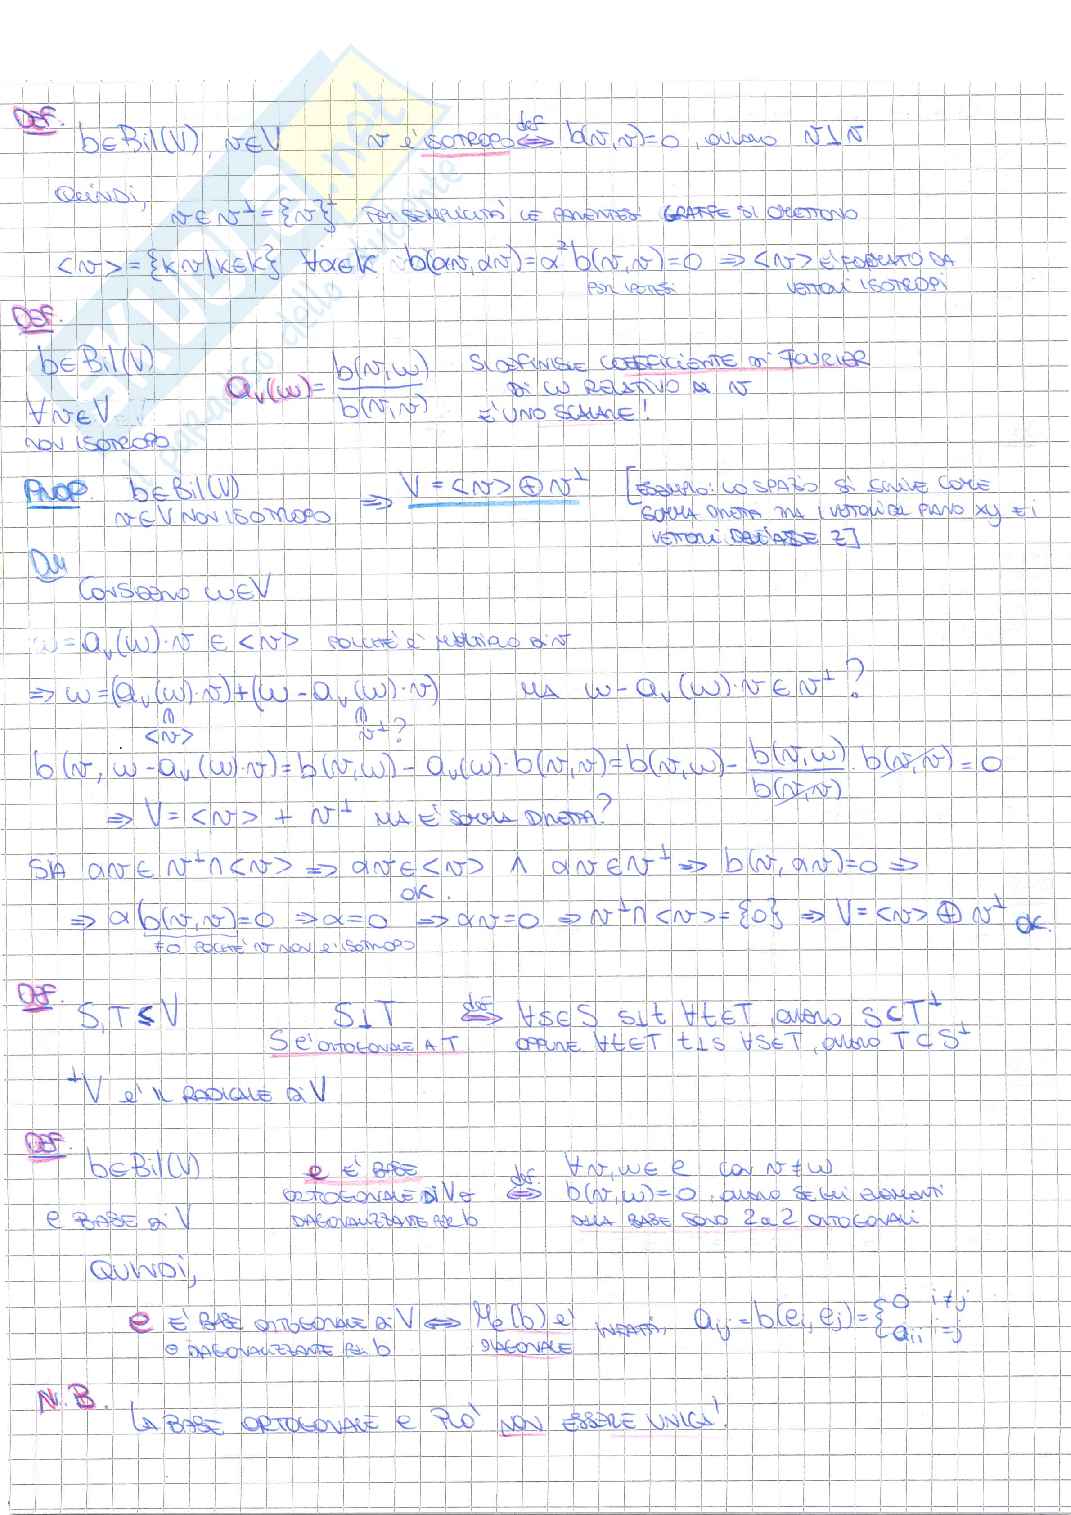 DEF.
b∈Bil(V), v∈V   v è ISOTROPO ⇔(def) b(v,v)=0, ovvero v⊥v
QUINDI,
v∈v^⊥={v}^⊥ PER SEMPLICITÀ LE PARENTESI GRAFFE SI OMETTONO
<v>={kv|k∈K} ∀α∈K b(αv,αv)=α²b(v,v)=0 ⇒ <v> È FORMATO DA
PER IPOTESI   VETTORI ISOTROPI
DEF.
b∈Bil(V)
∀v∈V
NON ISOTROPO
a_v(w)=b(v,w)/b(v,v)
SI DEFINISCE COEFFICIENTE di FOURIER
DI w RELATIVO A v
E' UNO SCALARE!
PROP. b∈Bil(V)
v∈V NON ISOTROPO
⇒ V=<v>⊕v^⊥
[ESEMPIO: LO SPAZIO SI SCRIVE COME
SOMMA DIRETTA TRA I VETTORI DEL PIANO xy E i
VETTORI DELL'ASSE Z]
DIM
CONSIDERO w∈V
w=a_v(w)·v ∈ <v> POICHÉ È MULTIPLO DI v
⇒ w=(a_v(w)·v)+(w-a_v(w)·v)   MA w-a_v(w)·v∈v^⊥?
∈ <v>   ∈ v^⊥?
b(v,w-a_v(w)·v)=b(v,w)-a_v(w)·b(v,v)=b(v,w)-b(v,w)/b(v,v)·b(v,v)=0
⇒ V=<v>+v^⊥ MA È SOMMA DIRETTA?
SIA αv∈v^⊥∩<v> ⇒ αv∈<v> ∧ αv∈v^⊥ ⇒ b(v,αv)=0 ⇒
OK.
⇒ αb(v,v)=0 ⇒ α=0 ⇒ αv=0 ⇒ v^⊥∩<v>={0} ⇒ V=<v>⊕v^⊥ OK.
≠0 POICHÉ v NON è ISOTROPO
DEF.
S,T≤V   S⊥T ⇔(def) ∀s∈S s⊥t ∀t∈T, ovvero S⊂T^⊥
S è ORTOGONALE A T   OPPURE ∀t∈T t⊥s ∀s∈T, ovvero T⊂S^⊥
^⊥V è IL RADICALE di V
DEF.
b∈Bil(V)
e BASE di V
e È BASE
ORTOGONALE di V o
DIAGONALIZZANTE PER b
⇔(def.)
∀v,w∈e con v≠w
b(v,w)=0, ovvero SE GLI ELEMENTI
DELLA BASE SONO 2 a 2 ORTOGONALI
QUINDI,
e È BASE ORTOGONALE di V ⇔ M_e(b) è   INFATTI, a_ij=b(e_i,e_j)={0 i≠j
O DIAGONALIZZANTE PER b   DIAGONALE   a_ii i=j
N.B.
LA BASE ORTOGONALE e PUÒ NON ESSERE UNICA!